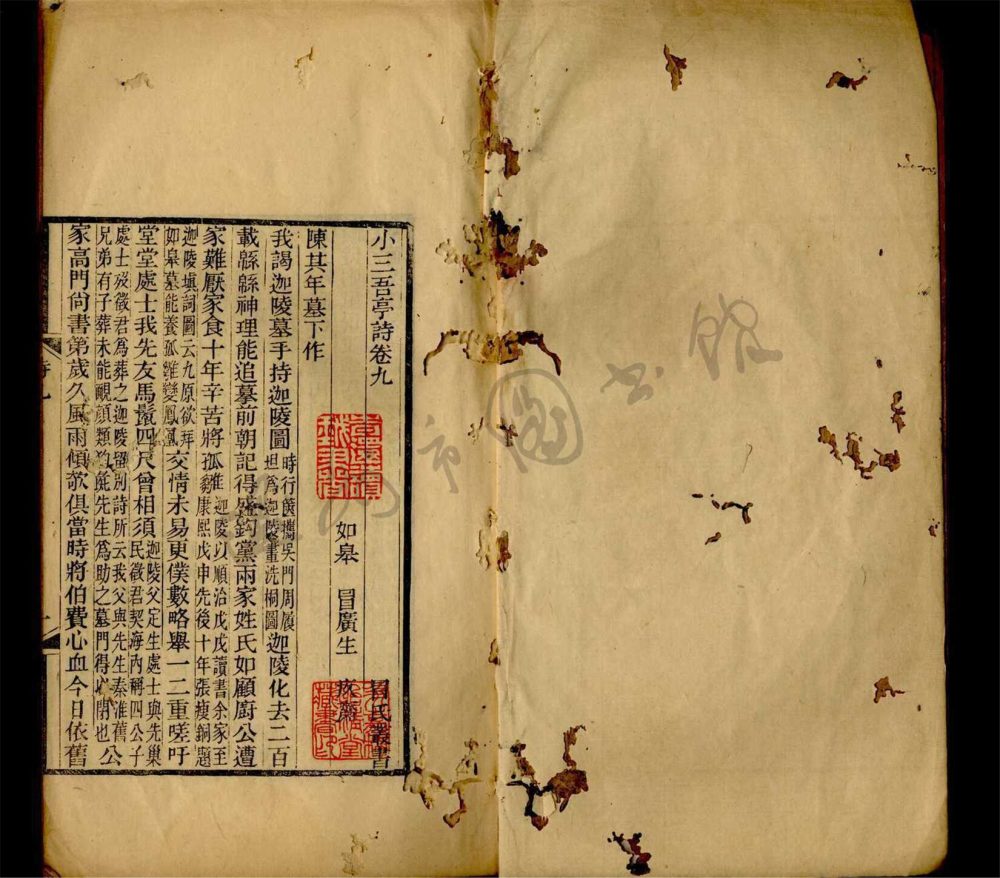 小三吾亭詩卷九
冒氏叢書
如皋 冒廣生 疚齋
陳其年墓下作
我謁迦陵墓手持迦陵圖時行篋攜吳門周履坦爲迦陵畫洗桐圖迦陵化去二百
載緜緜神理能追摹前朝記得盛鉤黨兩家姓氏如顧廚公遭
家難厭家食十年辛苦將孤雛迦陵以順治戊戌讀書余家至康熙戊申先後十年張瘦銅題
迦陵塡詞圖云九原欲拜如皋墓能養孤雛變鳳凰交情未易更僕數略舉一二重嗟吁
堂堂處士我先友馬鬛四尺曾相須迦陵父定生處士與先巢民徵君契海內稱四公子
處士歿徵君爲葬之迦陵留別詩所云我父與先生秦淮舊兄弟有子葬未能靦顏類芻豢先生爲助之墓門得以閉也公
家高門尙書第歲久風雨傾欹俱當時將伯費心血今日依舊
市圖書館